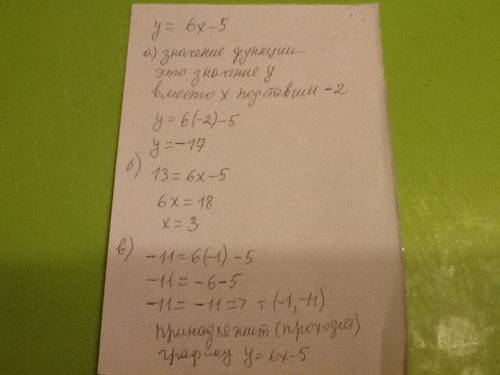 y = 6x-5
а) значение функции
это значение y
вместо x подставим -2
y = 6(-2)-5
y = -17
б)
13 = 6x-5
6x = 18
x = 3
в) -11 = 6(-1) -5
-11 = -6-5
-11 = -11 => т. (-1, -11)
принадлежит (проходит)
графику y = 6x-5